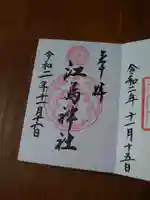 奉拝
江島神社
令和二年十一月十五日
令和二年十一月十五日